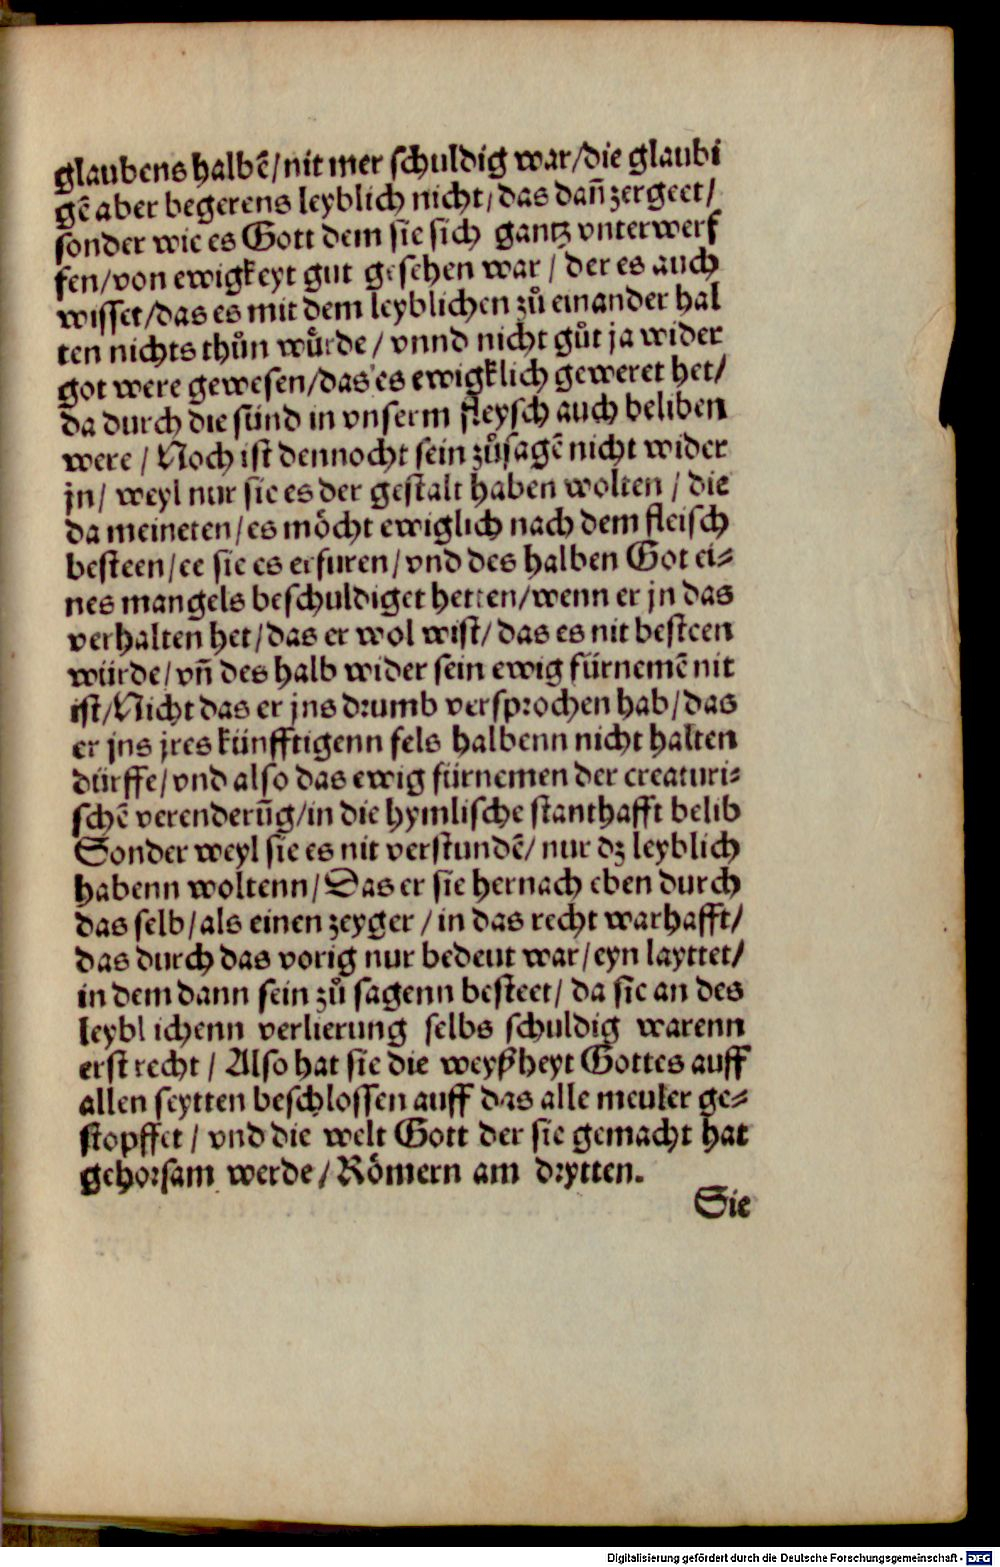 glaubens halbē/nit mer schuldig war/die glaubi
gē aber begerens leyblich nicht/das dañ zergeet/
sonder wie es Gott dem sie sich gantz vnterwerf
fen/von ewigkeyt gut gesehen war/der es auch
wisset/das es mit dem leyblichen zů einander hal
ten nichts thůn wůrde/vnnd nicht gůt ja wider
got were gewesen/das es ewigklich geweret het/
da durch die sünd in vnserm fleysch auch beliben
were/Noch ist dennocht sein zůsagē nicht wider
jn/weyl nur sie es der gestalt haben wolten/die
da meineten/es möcht ewiglich nach dem fleisch
besteen/ee sie es erfuren/vnd des halben Got ei⸗
nes mangels beschuldiget hetten/wenn er jn das
verhalten het/das er wol wist/das es nit besteen
würde/vñ des halb wider sein ewig fürnemē nit
ist/Nicht das er jns drumb versprochen hab/das
er jns jres künfftigenn fels halbenn nicht halten
dürffe/vnd also das ewig fürnemen der creaturi⸗
schē verenderūg/in die hymlische stanthafft belib
Sonder weyl sie es nit verstundē/nur dz leyblich
habenn woltenn/Das er sie hernach eben durch
das selb/als einen zeyger/in das recht warhafft/
das durch das vorig nur bedeut war/eyn layttet/
in dem dann sein zů sagenn besteet/da sie an des
leyblichenn verlierung selbs schuldig warenn
erst recht/Also hat sie die weyßheyt Gottes auff
allen seytten beschlossen auff das alle meuler ge⸗
stopffet/vnd die welt Gott der sie gemacht hat
gehorsam werde/Römern am drytten.
Sie
Digitalisierung gefördert durch die Deutsche Forschungsgemeinschaft - DFG